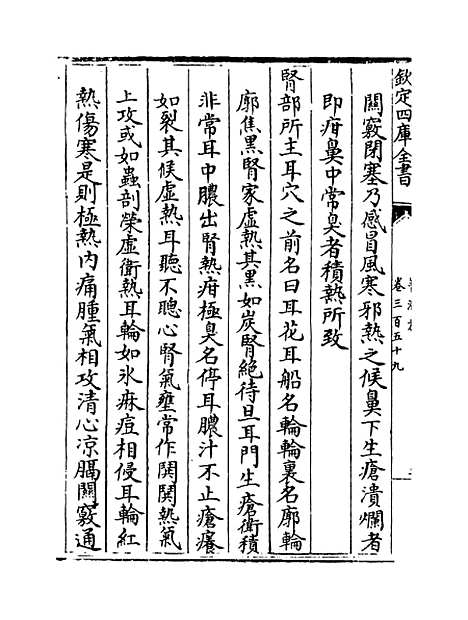 欽定四庫全書
卷三百五十九
關竅閉塞乃感冒風寒邪熱之候鼻下生瘡潰爛者
即疳鼻中常臭者積熱所致
腎部所主耳穴之前名曰耳花耳船名輪輪裏名廓輪
廓焦黑腎家虛熱其黑如炭腎絕待旦耳門生瘡衛積
非常耳中膿出腎熱疳極臭名停耳膿汁不止瘡癢
如裂其候虛熱耳聽不聰心腎氣壅常作閧閧熱氣
上攻或如蟲剖榮虛衛熱耳輪如冰痳痘相侵耳輪紅
熱傷寒是則極熱內痛腫氣相攻清心凉膈關竅通